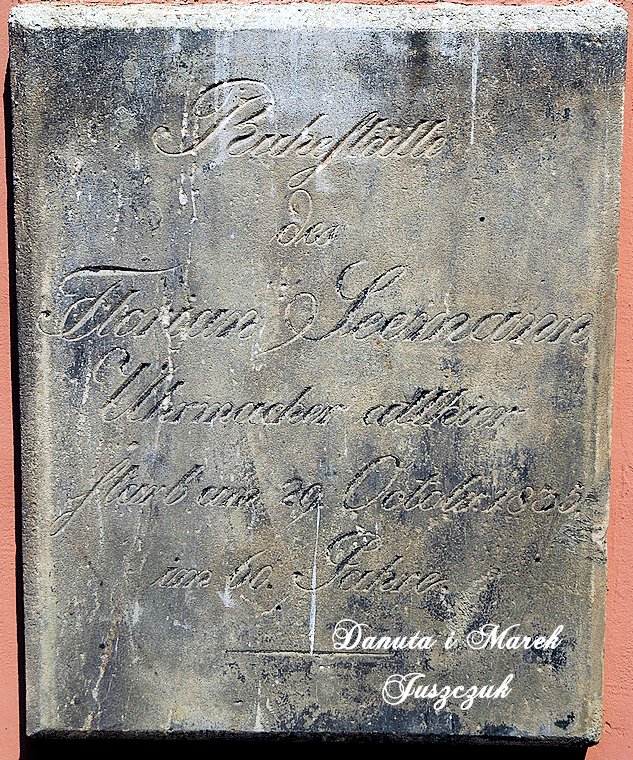 Ruhestätte
des
Florian Seemann
Uhrmacher allhier
starb am 29. Octobr. 1835
im 60. Jahre.
Danuta i Marek
Juszczuk